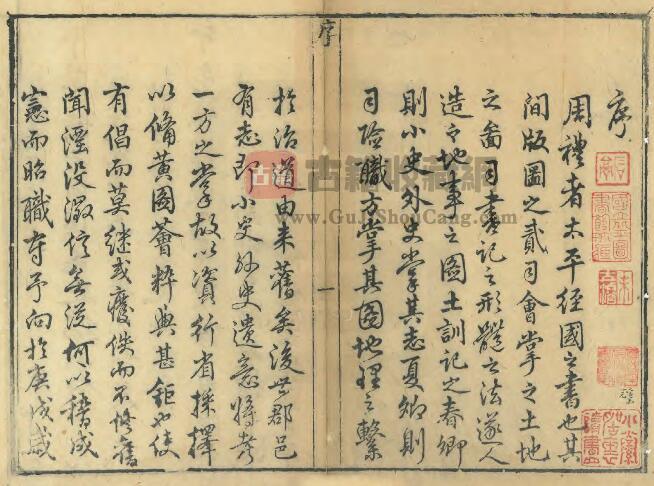 序
周禮者太平經國之書也其
間版圖之貳司會掌之土地
之圖司書記之形體之法遂人
造之地事之圖土訓記之春卿
則小史外史掌其志夏卿則
司險職方掌其圖地理之繫
序
一
於治道由来舊矣後世郡邑
有志即小史外史遺意將考
一方之掌故以資行省採擇
以備黃圖薈粹典甚鉅也使
有倡而莫継或廢佚而不修舊
聞湮沒澂信無從何以稽成
憲而昭職守予向於庚戌歲
古籍收藏網
www.GuJiShouCang.com